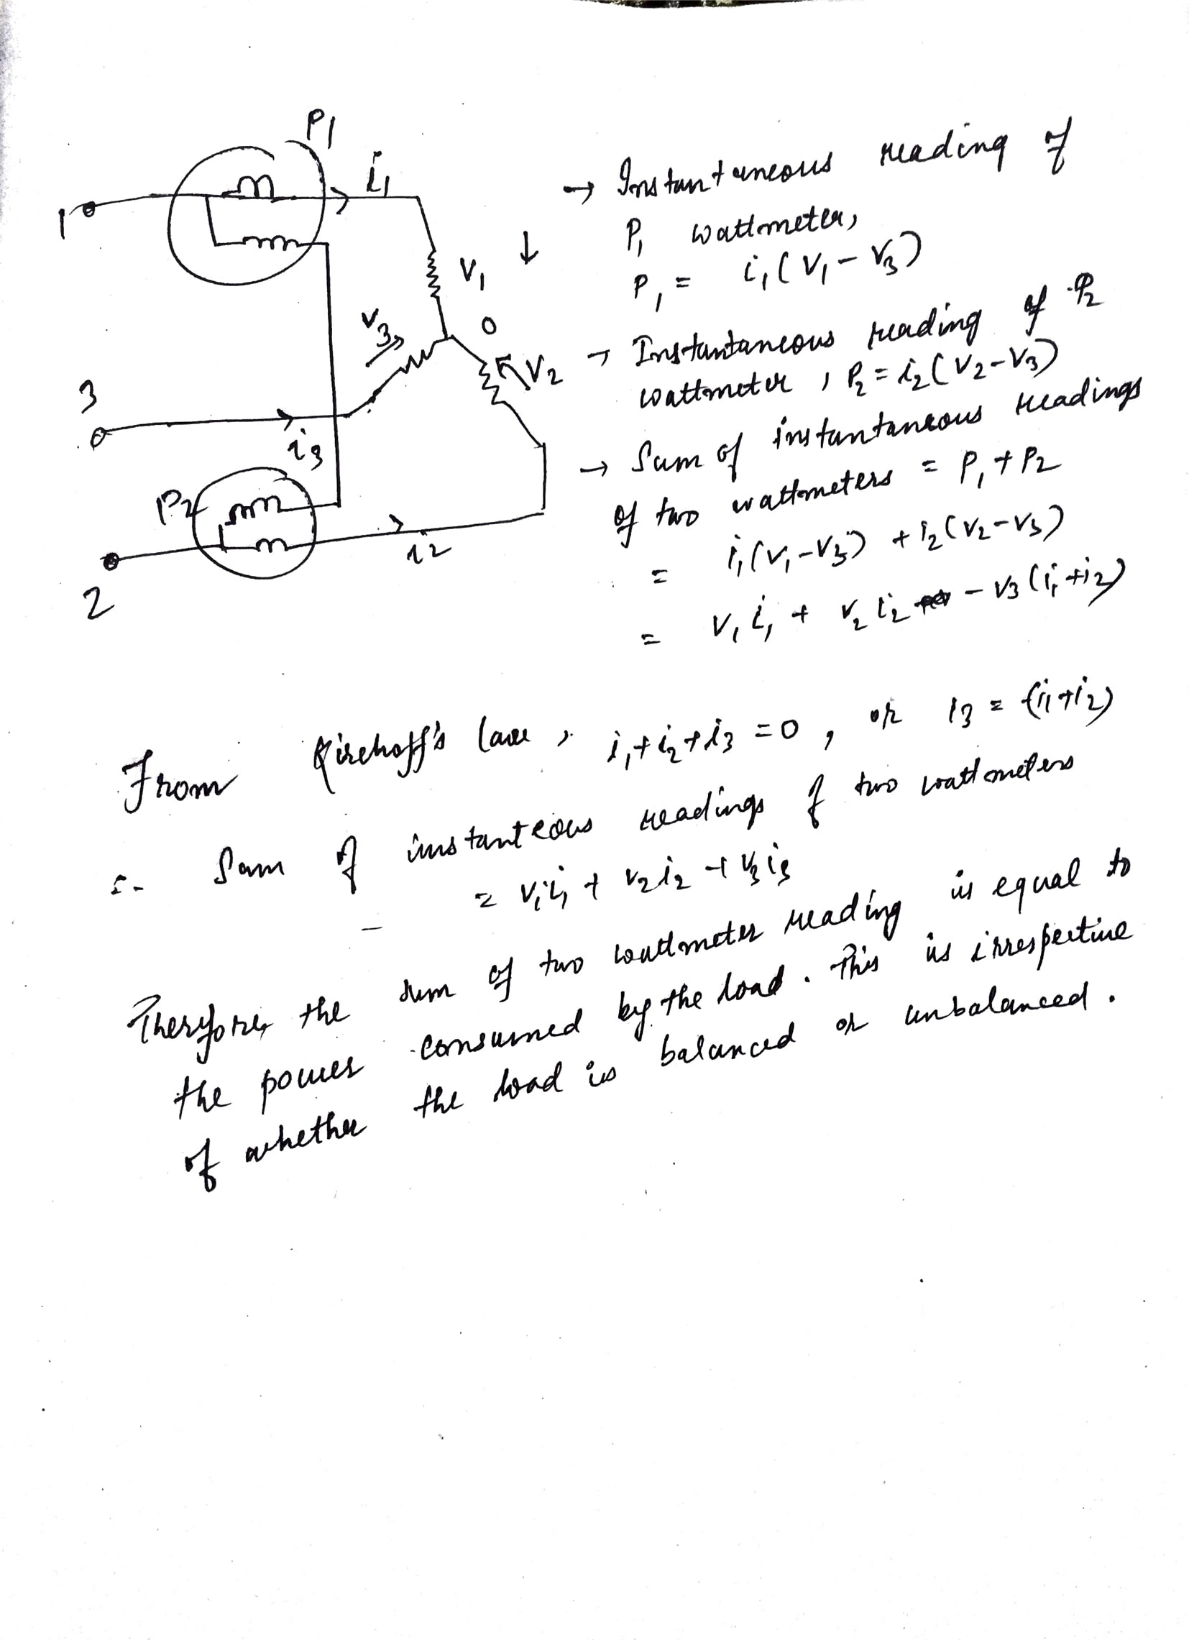 P1
i1
1
V1 ↓
O
V3
V2
3
i3
P2
i2
2
→ Instantaneous reading of
P1 wattmeter,
P1 = i1(V1 - V3)
→ Instantaneous reading of P2
wattmeter, P2 = i2(V2-V3)
→ Sum of instantaneous readings
of two wattmeters = P1 + P2
= i1(V1-V3) + i2(V2-V3)
= V1i1 + V2i2 - V3(i1+i2)
From Kirchoff's law, i1+i2+i3 = 0, or i3 = (i1+i2)
∴ Sum of instanteous readings of two wattmeters
= V1i1 + V2i2 + V3i3
Therefore, the sum of two wattmeter reading is equal to
the power consumed by the load. This is irrespective
of whether the load is balanced or unbalanced.